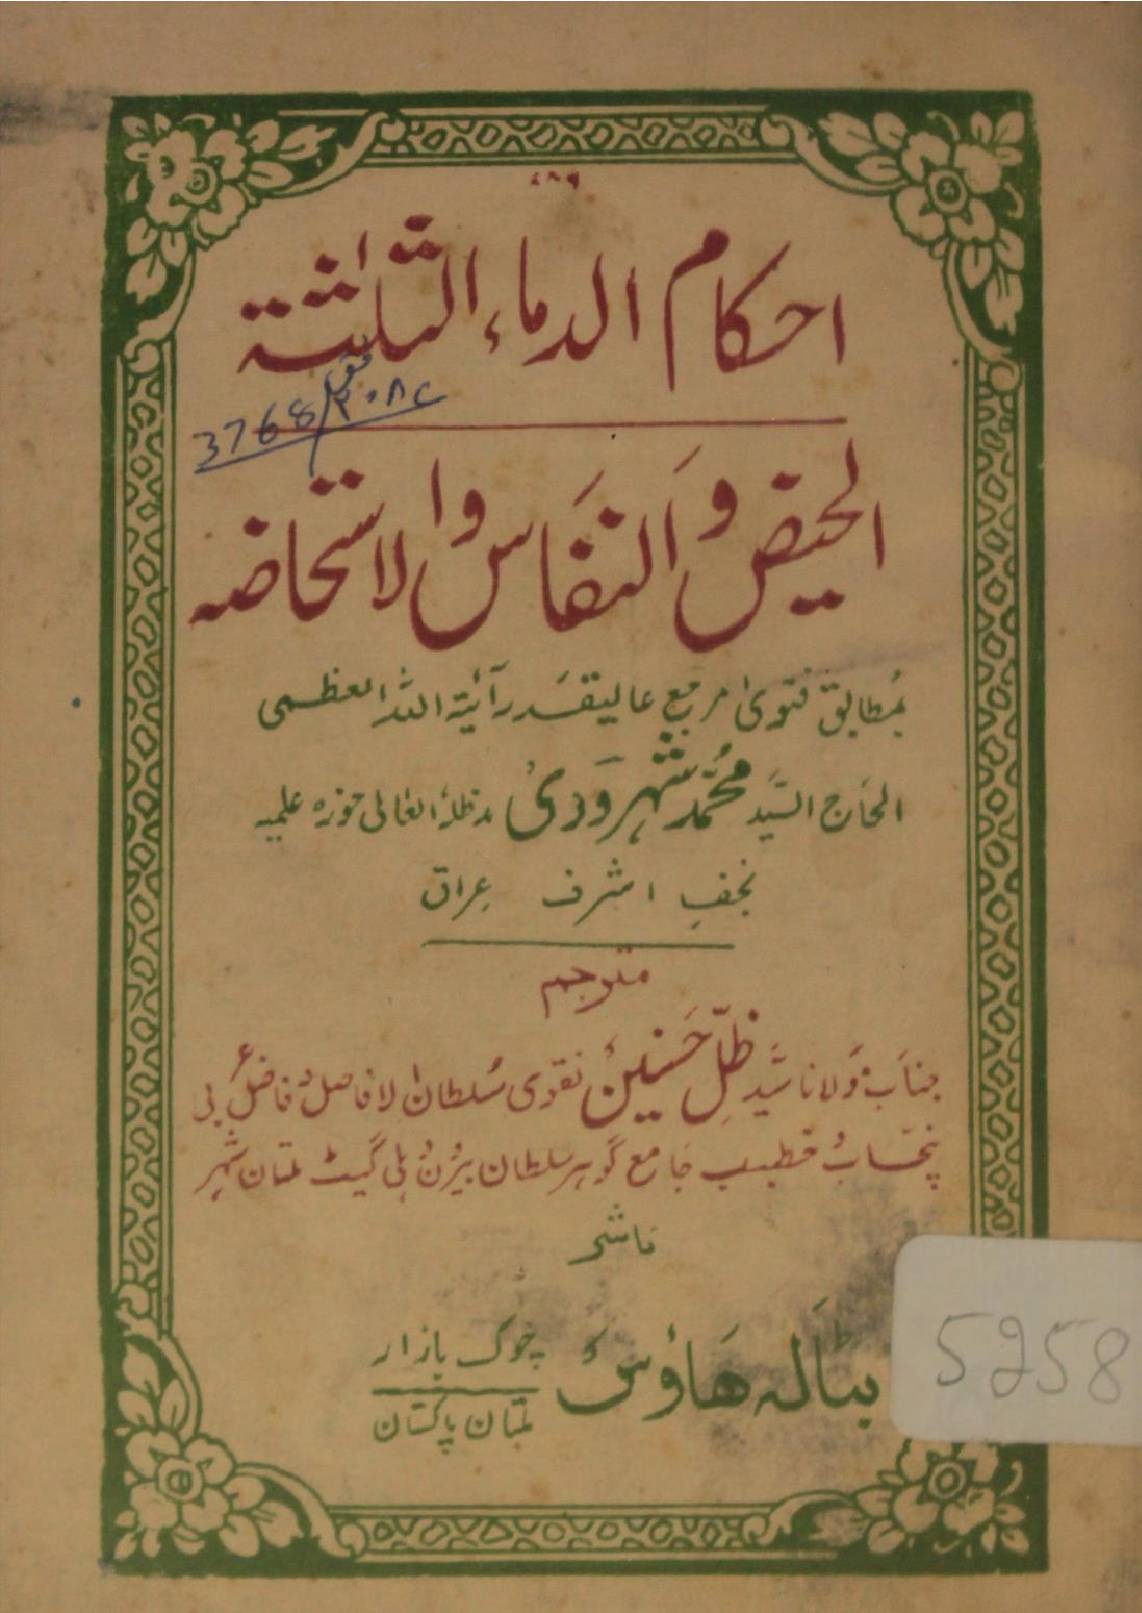 ۷۸۶
احکام الدماء الثلٰثة
3768/
الحیض وَالنفَاس والاستحاضہ
بمُطابق فتویٰ مرجع عالیقدر آیۃ اللہ العظمی
الحَاج السَّید محُمّد شہرَودی مدظلہٗ العالی حوزہ علمیہ
نجفِ اشرف عِراق
مترجم
جنابْ مولانا سَّید ظلِّ حَسنین نقوی سُلطان الافاضل و فاضل عربی
پنجاب خطیب جامع گوہر سلطان بیرُن گیٹ ملتان شہر
ناشر
بٹالہ ھَاؤسْ
چوک بازار
ملتان پاکستان
5258